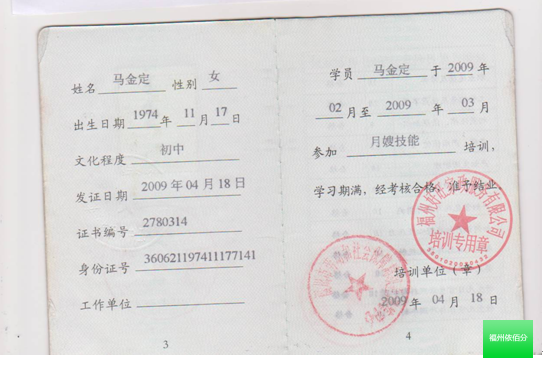 姓名 马金定 性别 女
出生日期 1974 年 11 月 17 日
文化程度 初中
发证日期 2009 年 04 月 18 日
证书编号 2780314
身份证号 360621197411177141
工作单位
3
学员 马金定 于 2009 年
02 月至 2009 年 03 月
参加 月嫂技能 培训，
学习期满，经考核合格，准予结业。
培训专用章
培训单位（章）
2009 年 04 月 18 日
4
福州依佰分